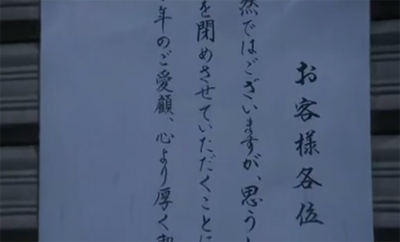 お客様各位
然ではございますが、思うと
を閉めさせていただくことに
年のご愛顧、心より厚く